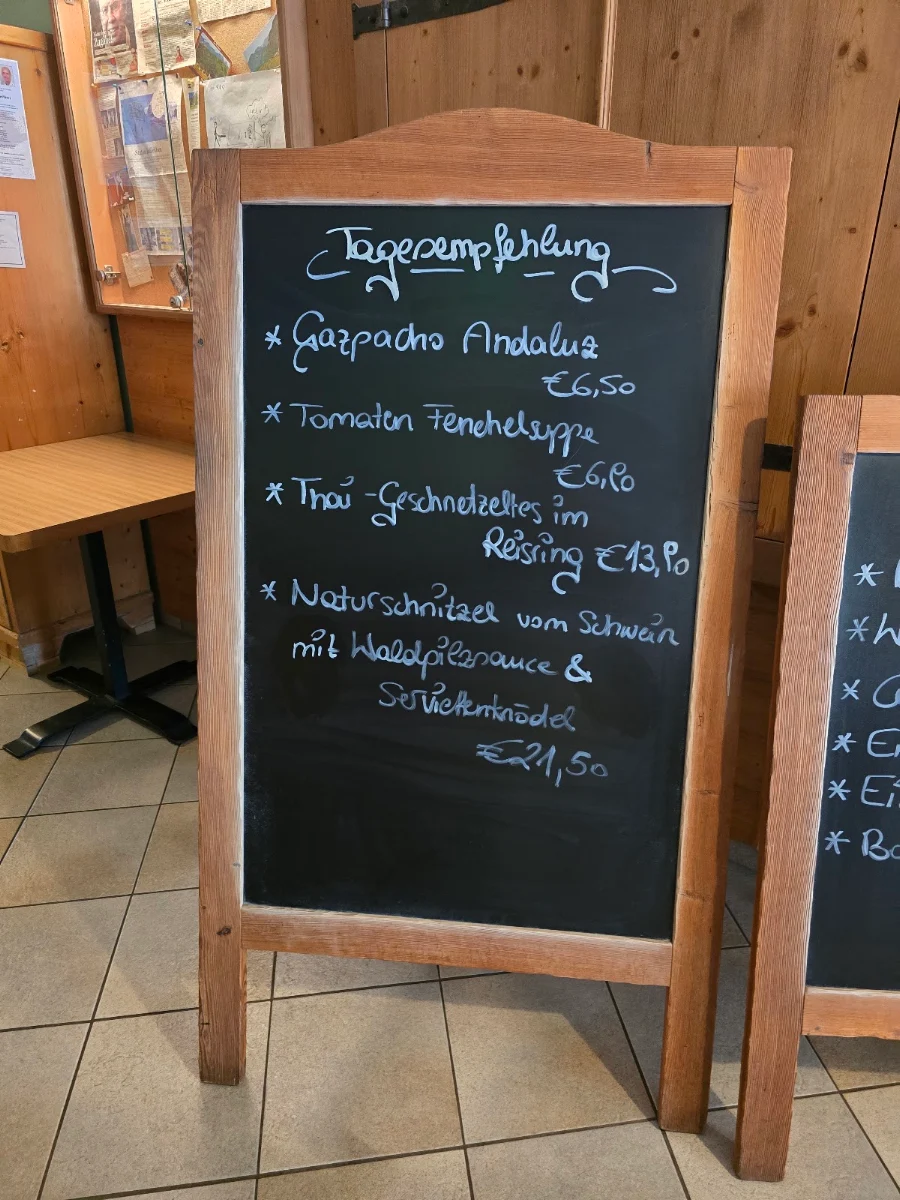 Tagesempfehlung
* Gazpacho Andaluz
€6,50
* Tomaten Fenchelsuppe
€6,80
* Thai - Geschnetzeltes im
Reisring €13,80
* Naturschnitzel vom Schwein
mit Waldpilzsauce &
Serviettenknödel
€21,50
*
*
*
* E
* Ei
* Bo